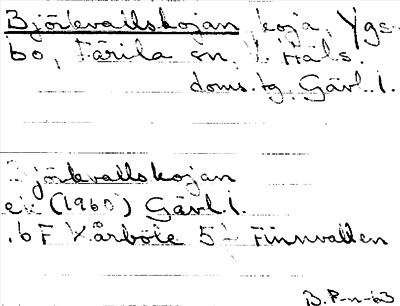 Björkvallskojan, koja, Ygs-
bo, Färila sn, V. Häls.
doms. tg, Gävl. l.
Björkvallskojan
ek (1960) Gävl. l.
6 F Kårböle 5 Finnvallen